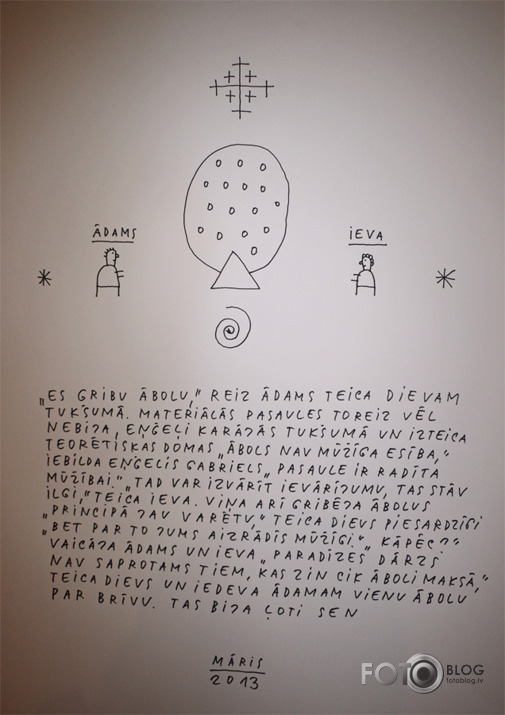 ĀDAMS
IEVA
„ES GRIBU ĀBOLU," REIZ ĀDAMS TEICA DIEVAM
TUKŠUMĀ. MATERIĀLĀS PASAULES TOREIZ VĒL
NEBIJA, EŅĢEĻI KARĀJĀS TUKŠUMĀ UN IZTEICA
TEORĒTISKAS DOMAS „ĀBOLS NAV MŪŽĪGA ESĪBA,"
IEBILDA EŅĢELIS GABRIELS, „PASAULE IR RADĪTA
MŪŽĪBAI." „TAD VAR IZVĀRĪT IEVĀRĪJUMU, TAS STĀV
ILGI," TEICA IEVA. VIŅA ARĪ GRIBĒJA ĀBOLUS
„PRINCIPĀ JAU VARĒTU," TEICA DIEVS PIESARDZĪGI
„BET PAR TO JUMS AIZRĀDĪS MŪŽĪGI." „KĀPĒC?"
VAICĀJA ĀDAMS UN IEVA „PARADĪZES DĀRZS
NAV SAPROTAMS TIEM, KAS ZIN CIK ĀBOLI MAKSĀ,"
TEICA DIEVS UN IEDEVA ĀDAMAM VIENU ĀBOLU
PAR BRĪVU. TAS BIJA ĻOTI SEN
MĀRIS
2013
FOTO BLOG
fotoblog.lv